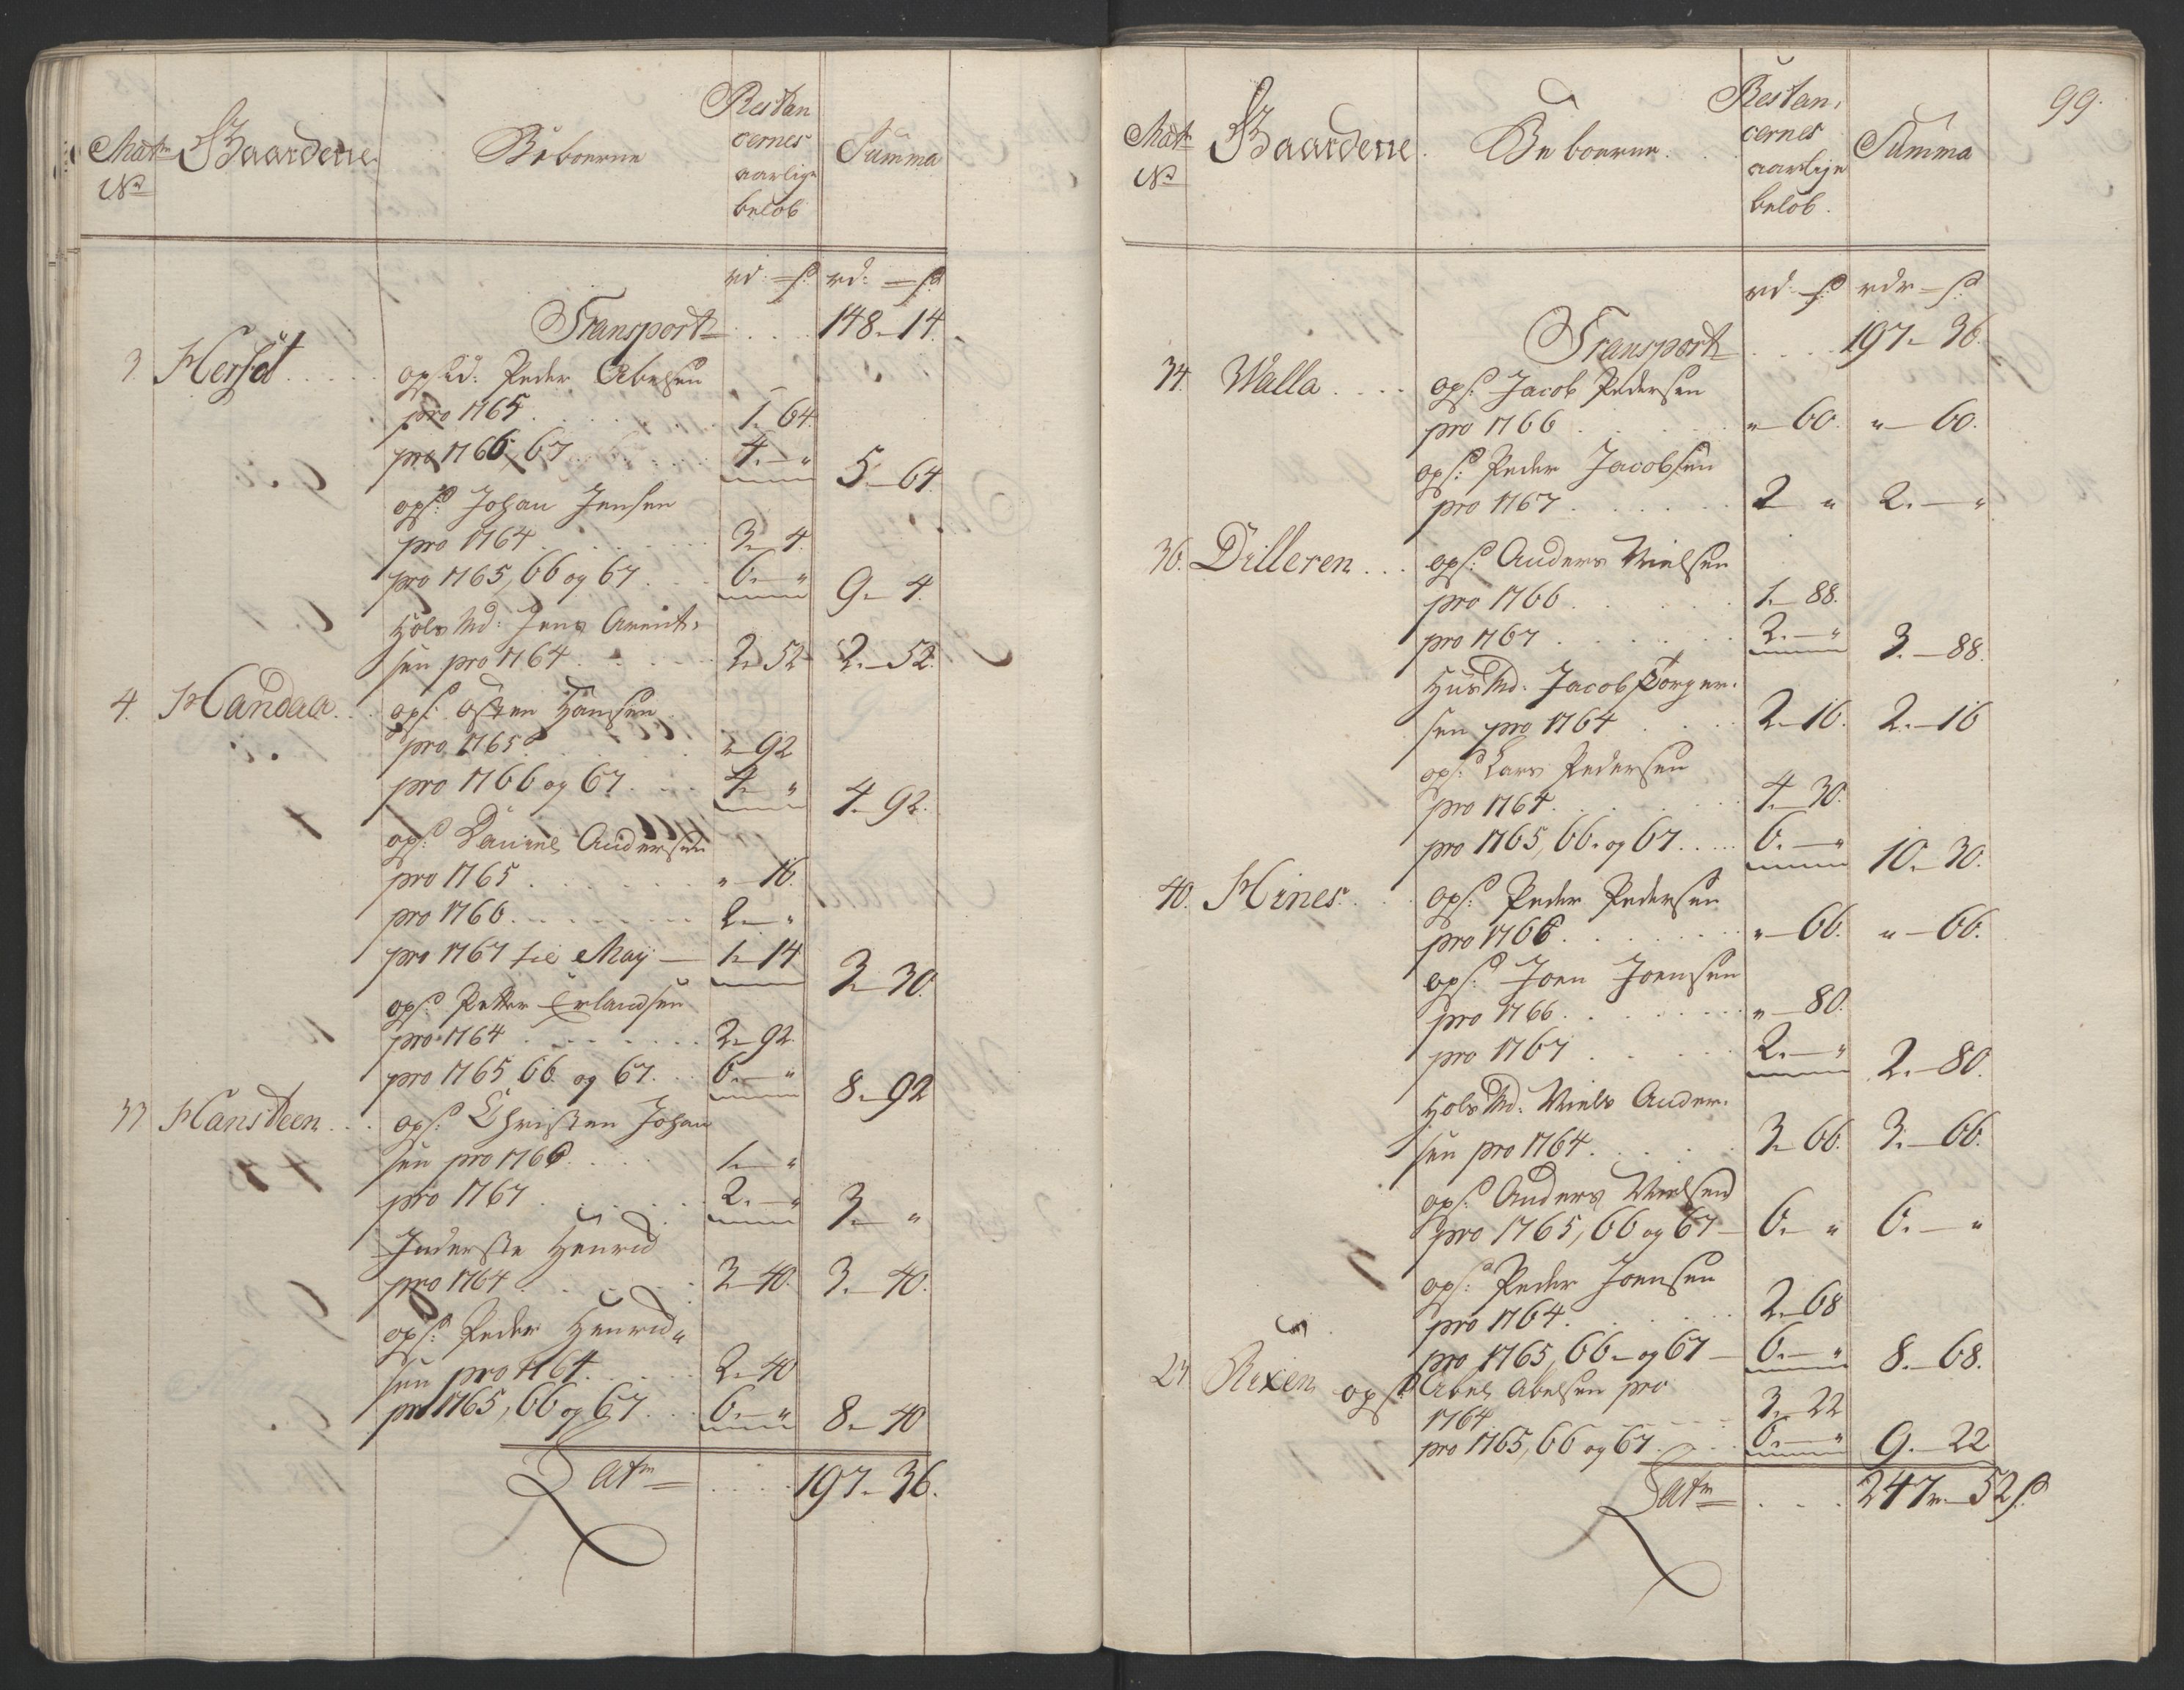 Matr
No
Gaardene
Beboerne
Restan
cernes
aarlige
beløb
Summa
rd. – s. rd. – s.
Transport . . . 148 – 14.
3. Hersæt . . . . . opsid: Peder Abelsen
pro 1765 . . . . 1 – 64.
pro 1766, 67 . . . . 4. – " 5 – 64.
ops: Johan Jensen
pro 1764 . . . . 3 – 4.
pro 1765, 66 og 67 . . . 6. – " 9 – 4.
Hols Md: Jens Arent-
sen pro 1764 . . . . 2 – 52 2. – 52.
4. Handaa . . . ops: Østen Hansen
pro 1765 . . . . " – 92
pro 1766 og 67 . . . 4. " 4 – 92.
ops: Daniel Andersen
pro 1765 . . . . " – 16.
pro 1766 . . . . 2. – "
pro 1767 til May – 1 – 14 3 – 30.
ops: Petter Erlandsen
pro 1764 . . . . 2 – 92.
pro 1765, 66 og 67 . . 6. – " 8. – 92
33 Hansteen . . . ops: Christen Johan
sen pro 1766 . . . 1. – "
pro 1767 . . . . 2. – " 3. – "
Inderste Henrich
pro 1764 . . . . 3 – 40. 3. – 40.
ops: Peder Henrich-
sen pro 1764 . . . 2 – 40
pro 1765, 66 og 67 . . 6. – " 8 – 40
Latr . . . . 197 – 36.
99.
Matr
No
Gaardene
Beboerne.
Restan,
cernes
aarlige
beløb.
Summa
rd. – s. rdr – s.
Transport . . . . 197 – 36.
34. Walla . . . . ops: Jacob Pedersen
pro 1766 . . . . " – 60. " – 60.
ops: Peder Jacobsen
pro 1767 . . . . 2 " 2. – "
36. Dilleren . . . ops: Anders Nielsen
pro 1766 . . . . 1. – 88.
pro 1767 . . . . 2. – " 3. – 88.
Huus Md: Jacob Torger-
sen pro 1764 . . . 2 – 16. 2. – 16
ops: Lars Pedersen
pro 1764 . . . . 4. – 30.
pro 1765, 66. og 67 . . . . 6. – " 10 – 30.
40. Hines . . . ops: Peder Pedersen
pro 1766 . . . . " – 66. " – 66.
ops: Joen Joensen
pro 1766 . . . . " – 80.
pro 1767 . . . . 2. – " 2. – 80.
Hols Md: Niels Ander-
sen pro 1764 . . . . 3 – 66. 3. – 66.
ops: Anders Nielsen
pro 1765, 66 og 67 – 6. – " 6. – "
ops: Peder Joensen
pro 1764 . . . . 2 – 68
pro 1765, 66 – og 67 – 6. – " 8. – 68.
23 Rixen ops: Abel Abelsen pro
1764 . . . . 3 – 22
pro 1765, 66 og 67 . . . 6. – " 9. – 22
Latr . . . . 247 r. – 52 s.